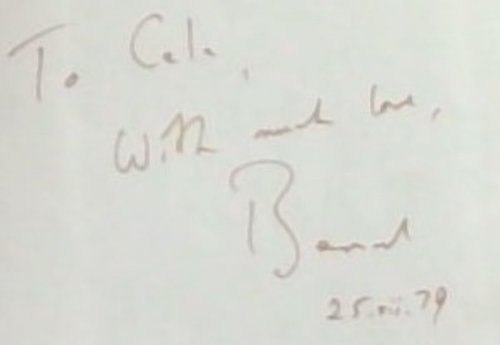 To Cele,
With much love,
Bernard
25.xii.79